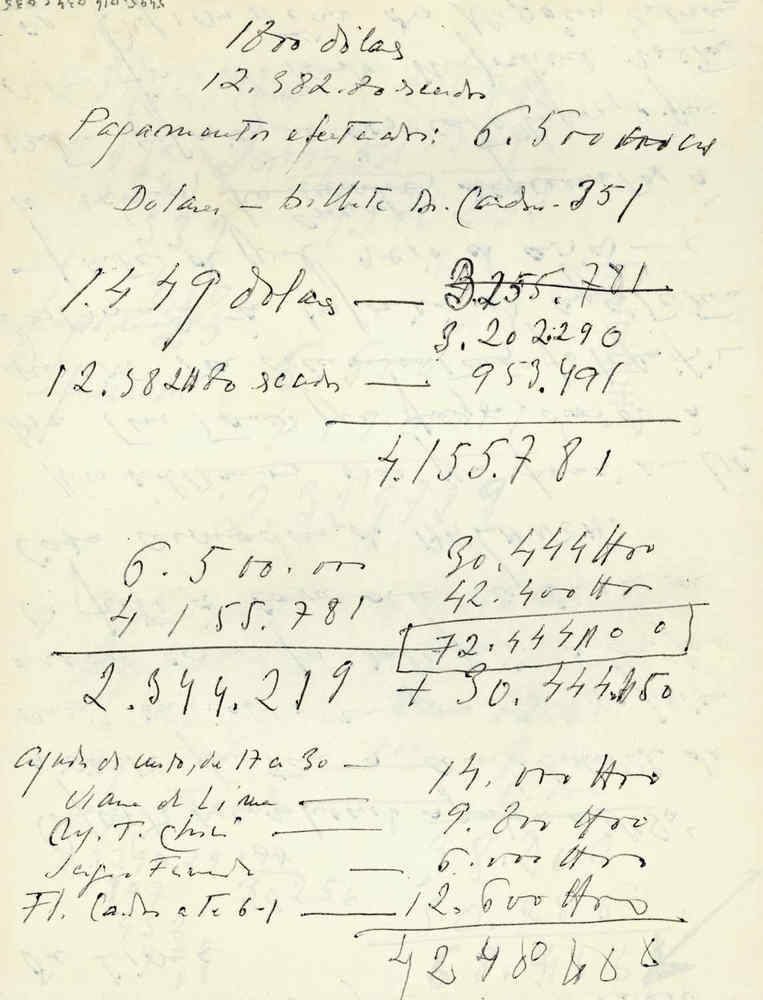 1800 dólas
12.382.80 escudos
Pagamentos efectuados: 6.500
Dolares — bilhete Dr. Carlos - 351
1.449 dólas — 3.255.781
3.202.290
12.382$80 escudos — 953.491
4.155.781
6.500.000
4155.781
2.344.219
30.444$00
42.400$00
72.444$00
+ 30.444.$50
Ajuda de custo, de 17 a 30 — 14.000$00
Viana de Lima — 9.800$00
— 6.000$00
Fl. Carlos até 6-1 — 12.600$00
42.400$00